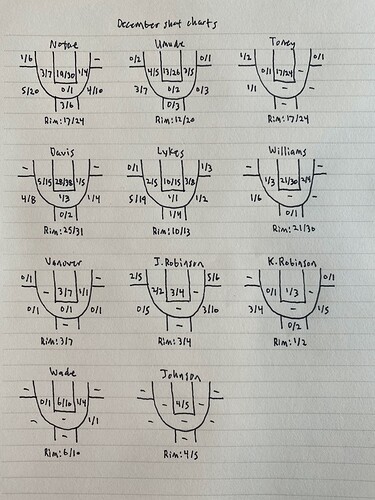 December shot charts
Notae Umude Toney
1/6 0/2 0/1 1/2 0/1
3/7 19/30 1/4 4/5 13/26 3/5 0/1 17/24 -
5/20 0/1 4/10 3/7 0/2 0/3 1/1 - -
3/6 0/3 -
Rim: 17/24 Rim: 12/20 Rim: 17/24
Davis Lykes Williams
- - 0/1 1/3 - -
5/15 28/38 1/5 2/5 10/15 3/8 1/3 21/30 2/4
4/8 1/3 1/4 5/19 1/1 1/2 1/6 - -
0/2 1/4 0/1
Rim: 25/31 Rim: 10/13 Rim: 21/30
Vanover J. Robinson K. Robinson
0/1 - 2/5 5/6 - 0/1
- 3/7 1/1 2/2 3/4 - 0/1 1/3 -
0/1 0/1 0/1 0/5 - 3/10 3/4 - 1/5
- - 0/2
Rim: 3/7 Rim: 3/4 Rim: 1/2
Wade Johnson
- - - -
0/1 6/10 1/4 - 4/5 -
- - 1/1 - - -
- -
Rim: 6/10 Rim: 4/5